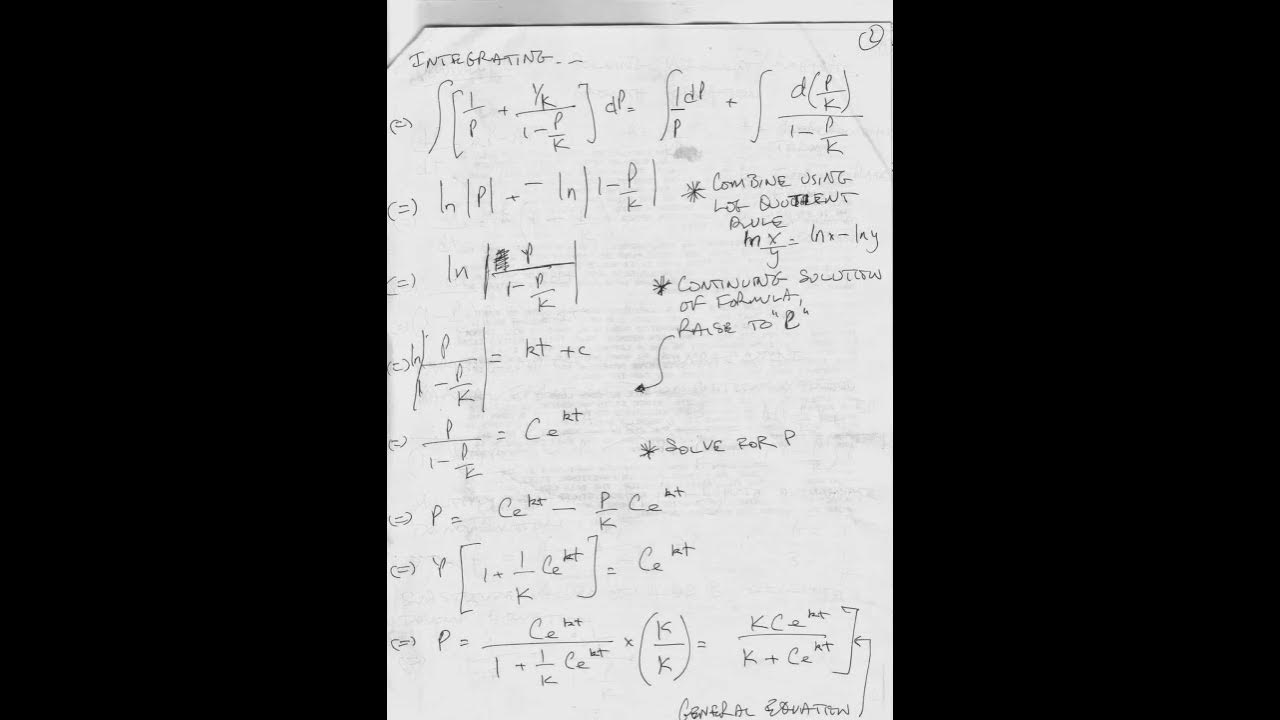 ②
INTEGRATING...
(=) ∫[1/P + (1/K)/(1-P/K)] dP = ∫ 1/P dP + ∫ d(P/K)/(1-P/K)
(=) ln|P| + - ln|1-P/K|
* COMBINE USING
LOG QUOTIENT
RULE
ln x/y = lnx-lny
(=) ln|P/(1-P/K)|
* CONTINUING SOLUTION
OF FORMULA,
RAISE TO "e"
(=) ln|P/(1-P/K)| = kt + c
(=) P/(1-P/K) = Ce^kt
* SOLVE FOR P
(=) P = Ce^kt - P/K Ce^kt
(=) P[1 + 1/K Ce^kt] = Ce^kt
(=) P = Ce^kt/(1 + 1/K Ce^kt) × (K/K) = KCe^kt/(K + Ce^kt)]
GENERAL EQUATION